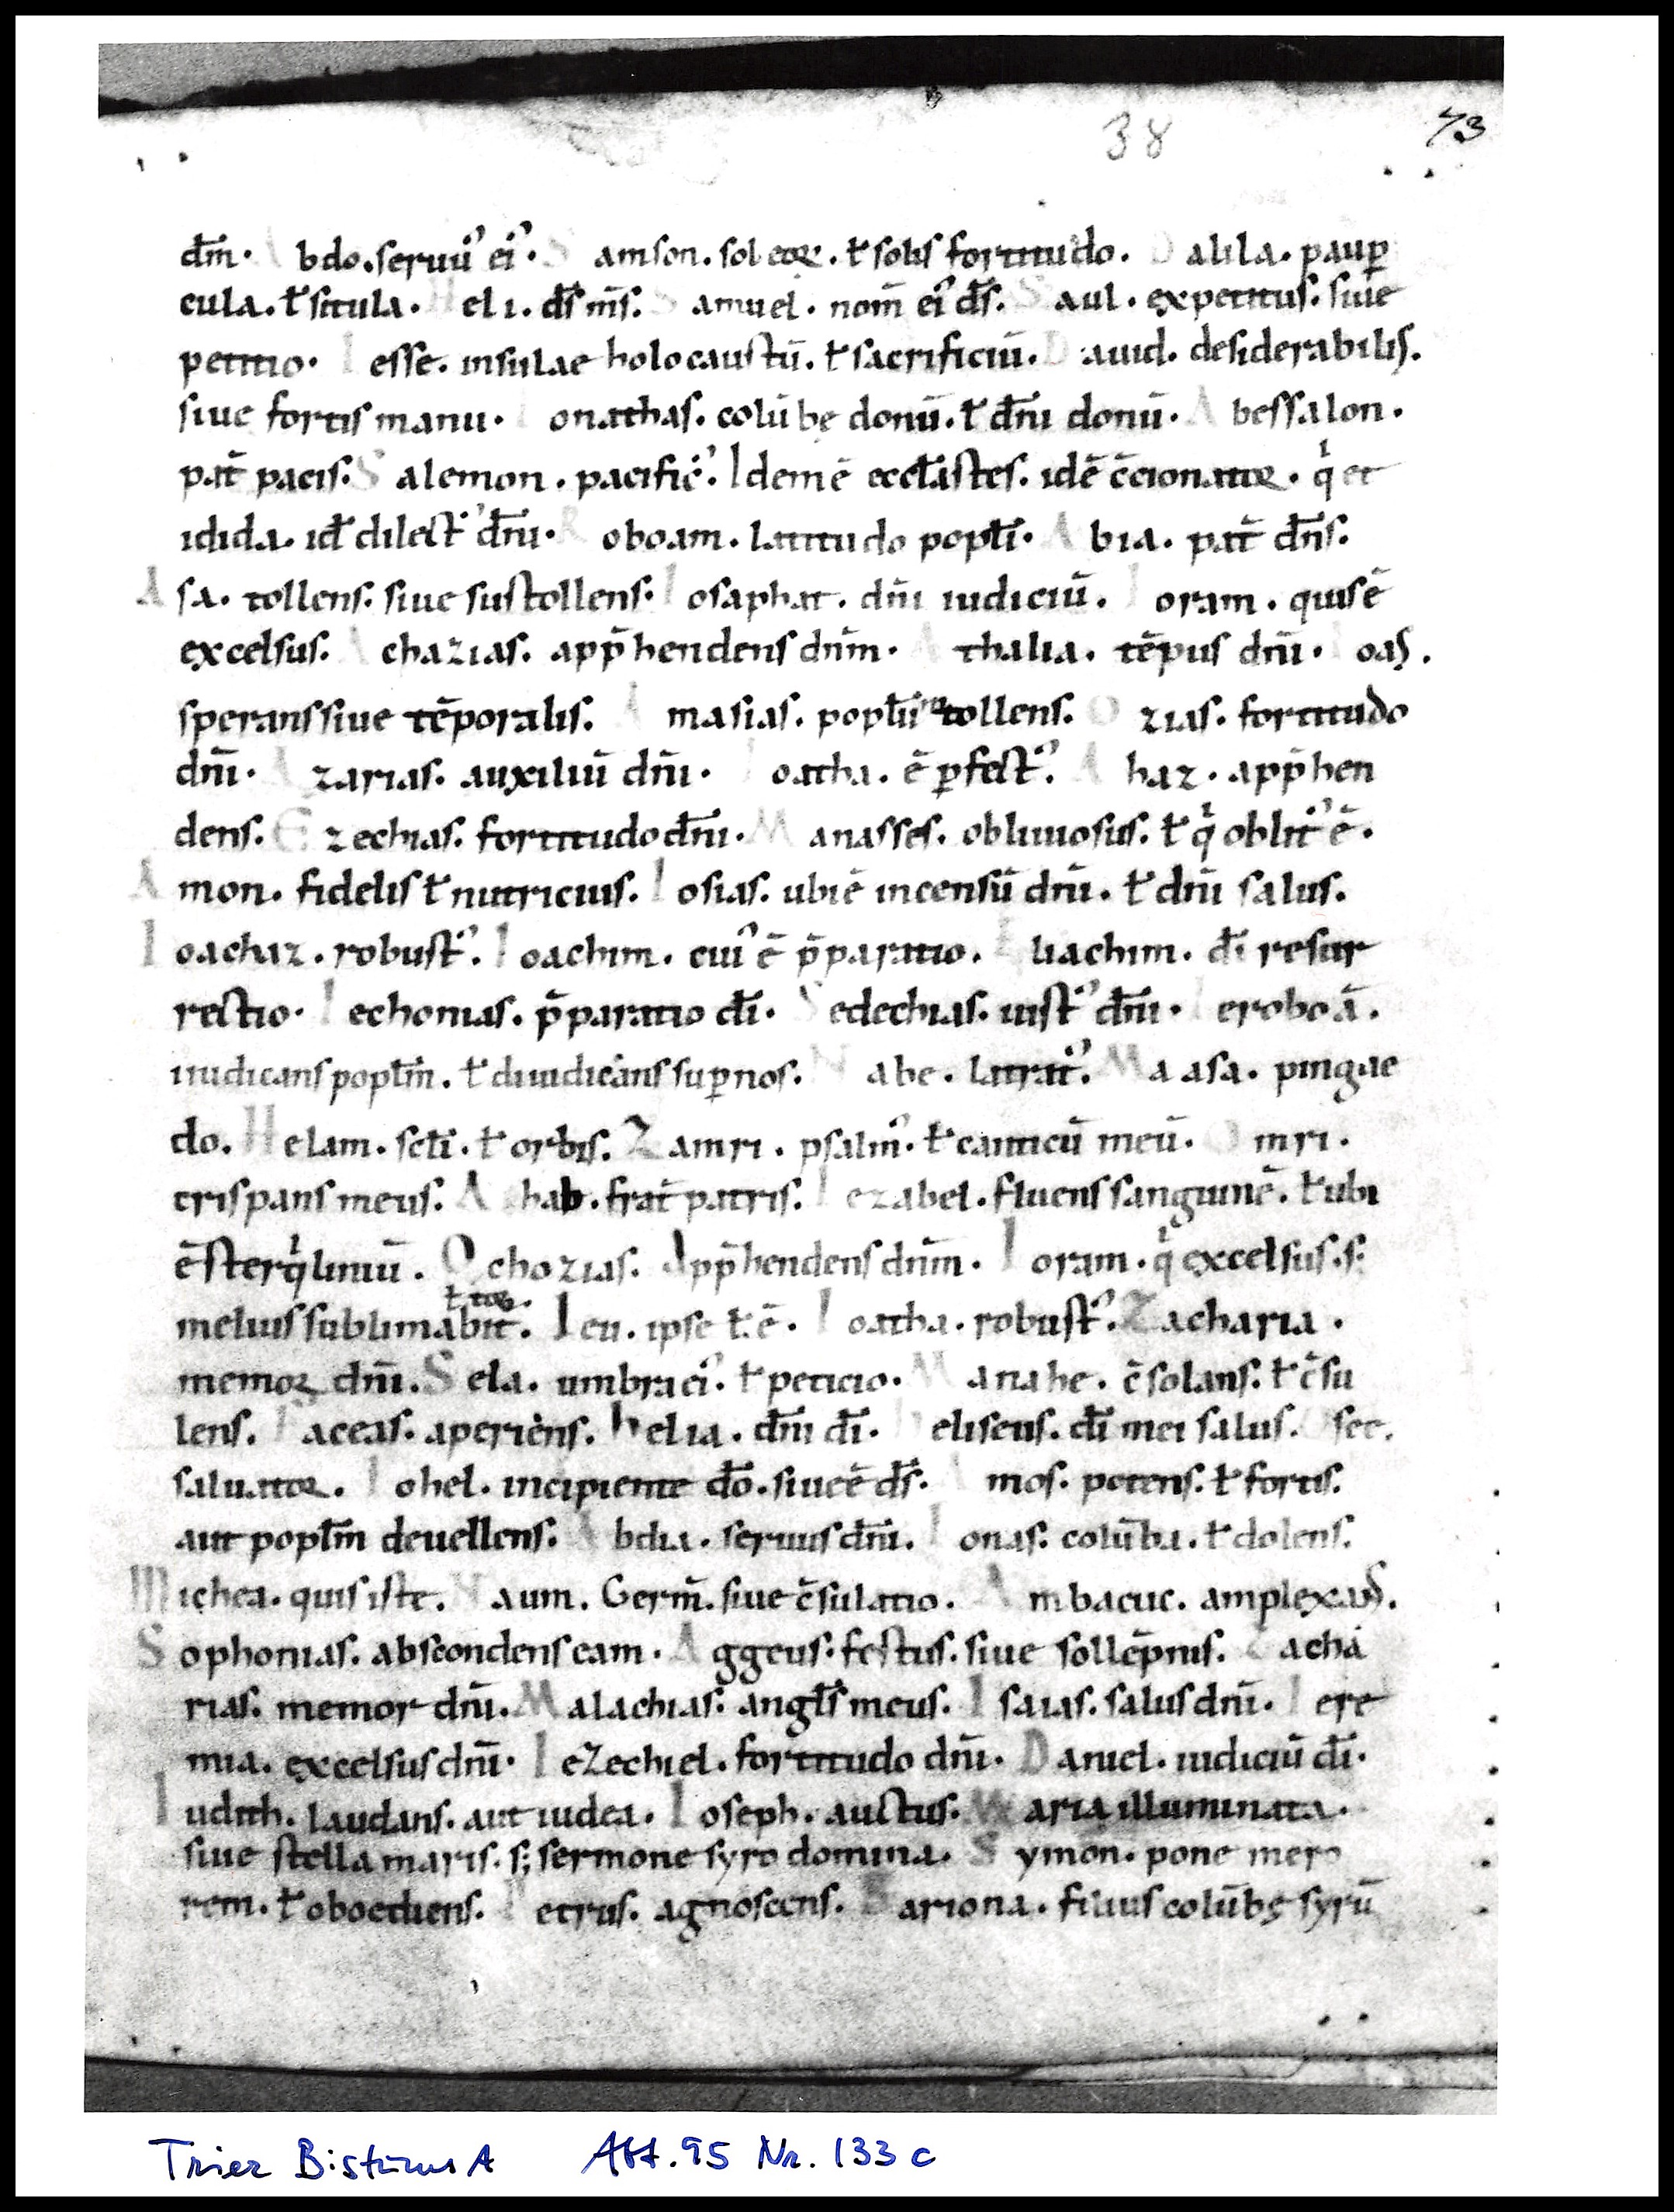 38 73
dm̄· Abdo. seruu᾿ ei᾿. Samson. sol eoꝝ. ƚ solis fortitudo. Dalila. paup̱
cula. ƚ situla. Heli. ds̄ ms̄. Samuel. nom̄ ei᾿ ds̄. Saul. expetitus. siue
petitio. Iesse. insulae holocaustū. ƚ sacrificiū. Dauid. desiderabilis.
siue fortis manu. Ionathas. colūbe donū. ƚ dn̄i donū. Abessalon.
pat̄ pacis. Salemon. pacific᾿. Idem ē eccl̄astes. idē c̄cionatoꝝ. qⁱ et
idida. id ̄ dilect᾿ dn̄i. Roboam. latitudo popl̄i. Abia. pat̄ dn̄s.
Asa. tollens. siue sustollens. Iosaphat. dn̄i iudiciū. Ioram. quis ē
excelsus. Achazias. app̄hendens dnm̄. Athalia. tēpus dn̄i. Ioas.
sperans siue tēporalis. Amasias. popl̄ū tollens. Ozias. fortitudo
dn̄i. Azarias. auxiliū dn̄i. Ioatha. ē ꝑfect᾿. Ahaz. app̄hen
dens. Ezechias. fortitudo dn̄i. Manasses. obliuiosus. ƚ qⁱ oblit᾿ ē.
Amon. fidelis ƚ nutricius. Iosias. ubi ē incensū dn̄i. ƚ dn̄i salus.
Ioachaz. robust᾿. Ioachim. cui᾿ ē p̄paratio. Eliachim. dī resur
rectio. Iechonias. p̄paratio dī. Sedechias. iust᾿ dn̄i. Ieroboā.
iudicans popl̄m. ƚ diiudicans suꝑ nos. Nabe. latrat᾿. Maasa. pingue
do. Helam. scl̄i. ƚ orbis. Zamri. psalm᾿. ƚ canticū meū. Omri.
crispans meus. Achab. frat̄ patris. Iezabel. fluens sanguinē. ƚ ubi
ē sterqⁱliniū. Ochozias. App̄hendens dnm̄. Ioram. qⁱ excelsus. s;
melius sublimabit. Ieu. ipse ƚ. ē. Ioatha. robust᾿. Zacharia.
memoꝛ dn̄i. Sela. umbra ei᾿. ƚ peticio. Manahe. c̄solans. ƚ c̄su
lens. Faceas. aperiens. helia. dn̄i dī. heliseus. dī mei salus. Osee.
saluatoꝝ. Iohel. incipiente do᷑. siue ē ds̄. Amos. potens. ƚ fortis.
aut popl̄m deuellens. Abdia. seruus dn̄i. Ionas. colūba. ƚ dolens.
Michea. quis iste. Naum. Germ̄. siue c̄sulatio. Ambacuc. amplexās.
Sophonias. abscondens eam. Aggeus. festus. siue sollēpnis. Zacha
rias. memor dn̄i. Malachias. angl̄s meus. Isaias. salus dn̄i. Iere
mia. excelsus dn̄i. Iezechiel. fortitudo dn̄i. Daniel. iudiciū dī.
Iudith. laudans. aut iudea. Ioseph. auctus. Maria illuminata.
siue stella maris. s; sermone syro domina. Symon. pone mero
rem. ƚ oboediens. Petrus. agnoscens. Bariona. filius colūbę syrū
Trier Bistums A Abt. 95 Nr. 133 c